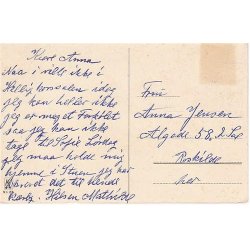 Kære Anna
Naa i vilde ikke i
Hellig korsalen i dag
jeg kan heller ikke
jeg er meget Forkølet
saa jeg kan ikke
tage til Sofie Lørdag
jeg maa holde mig
hjemme i Stuen jeg har
det til
Hilsen Mathilde
Frøi
Anna Jensen
Algade 58, 2 Sal
Roskilde